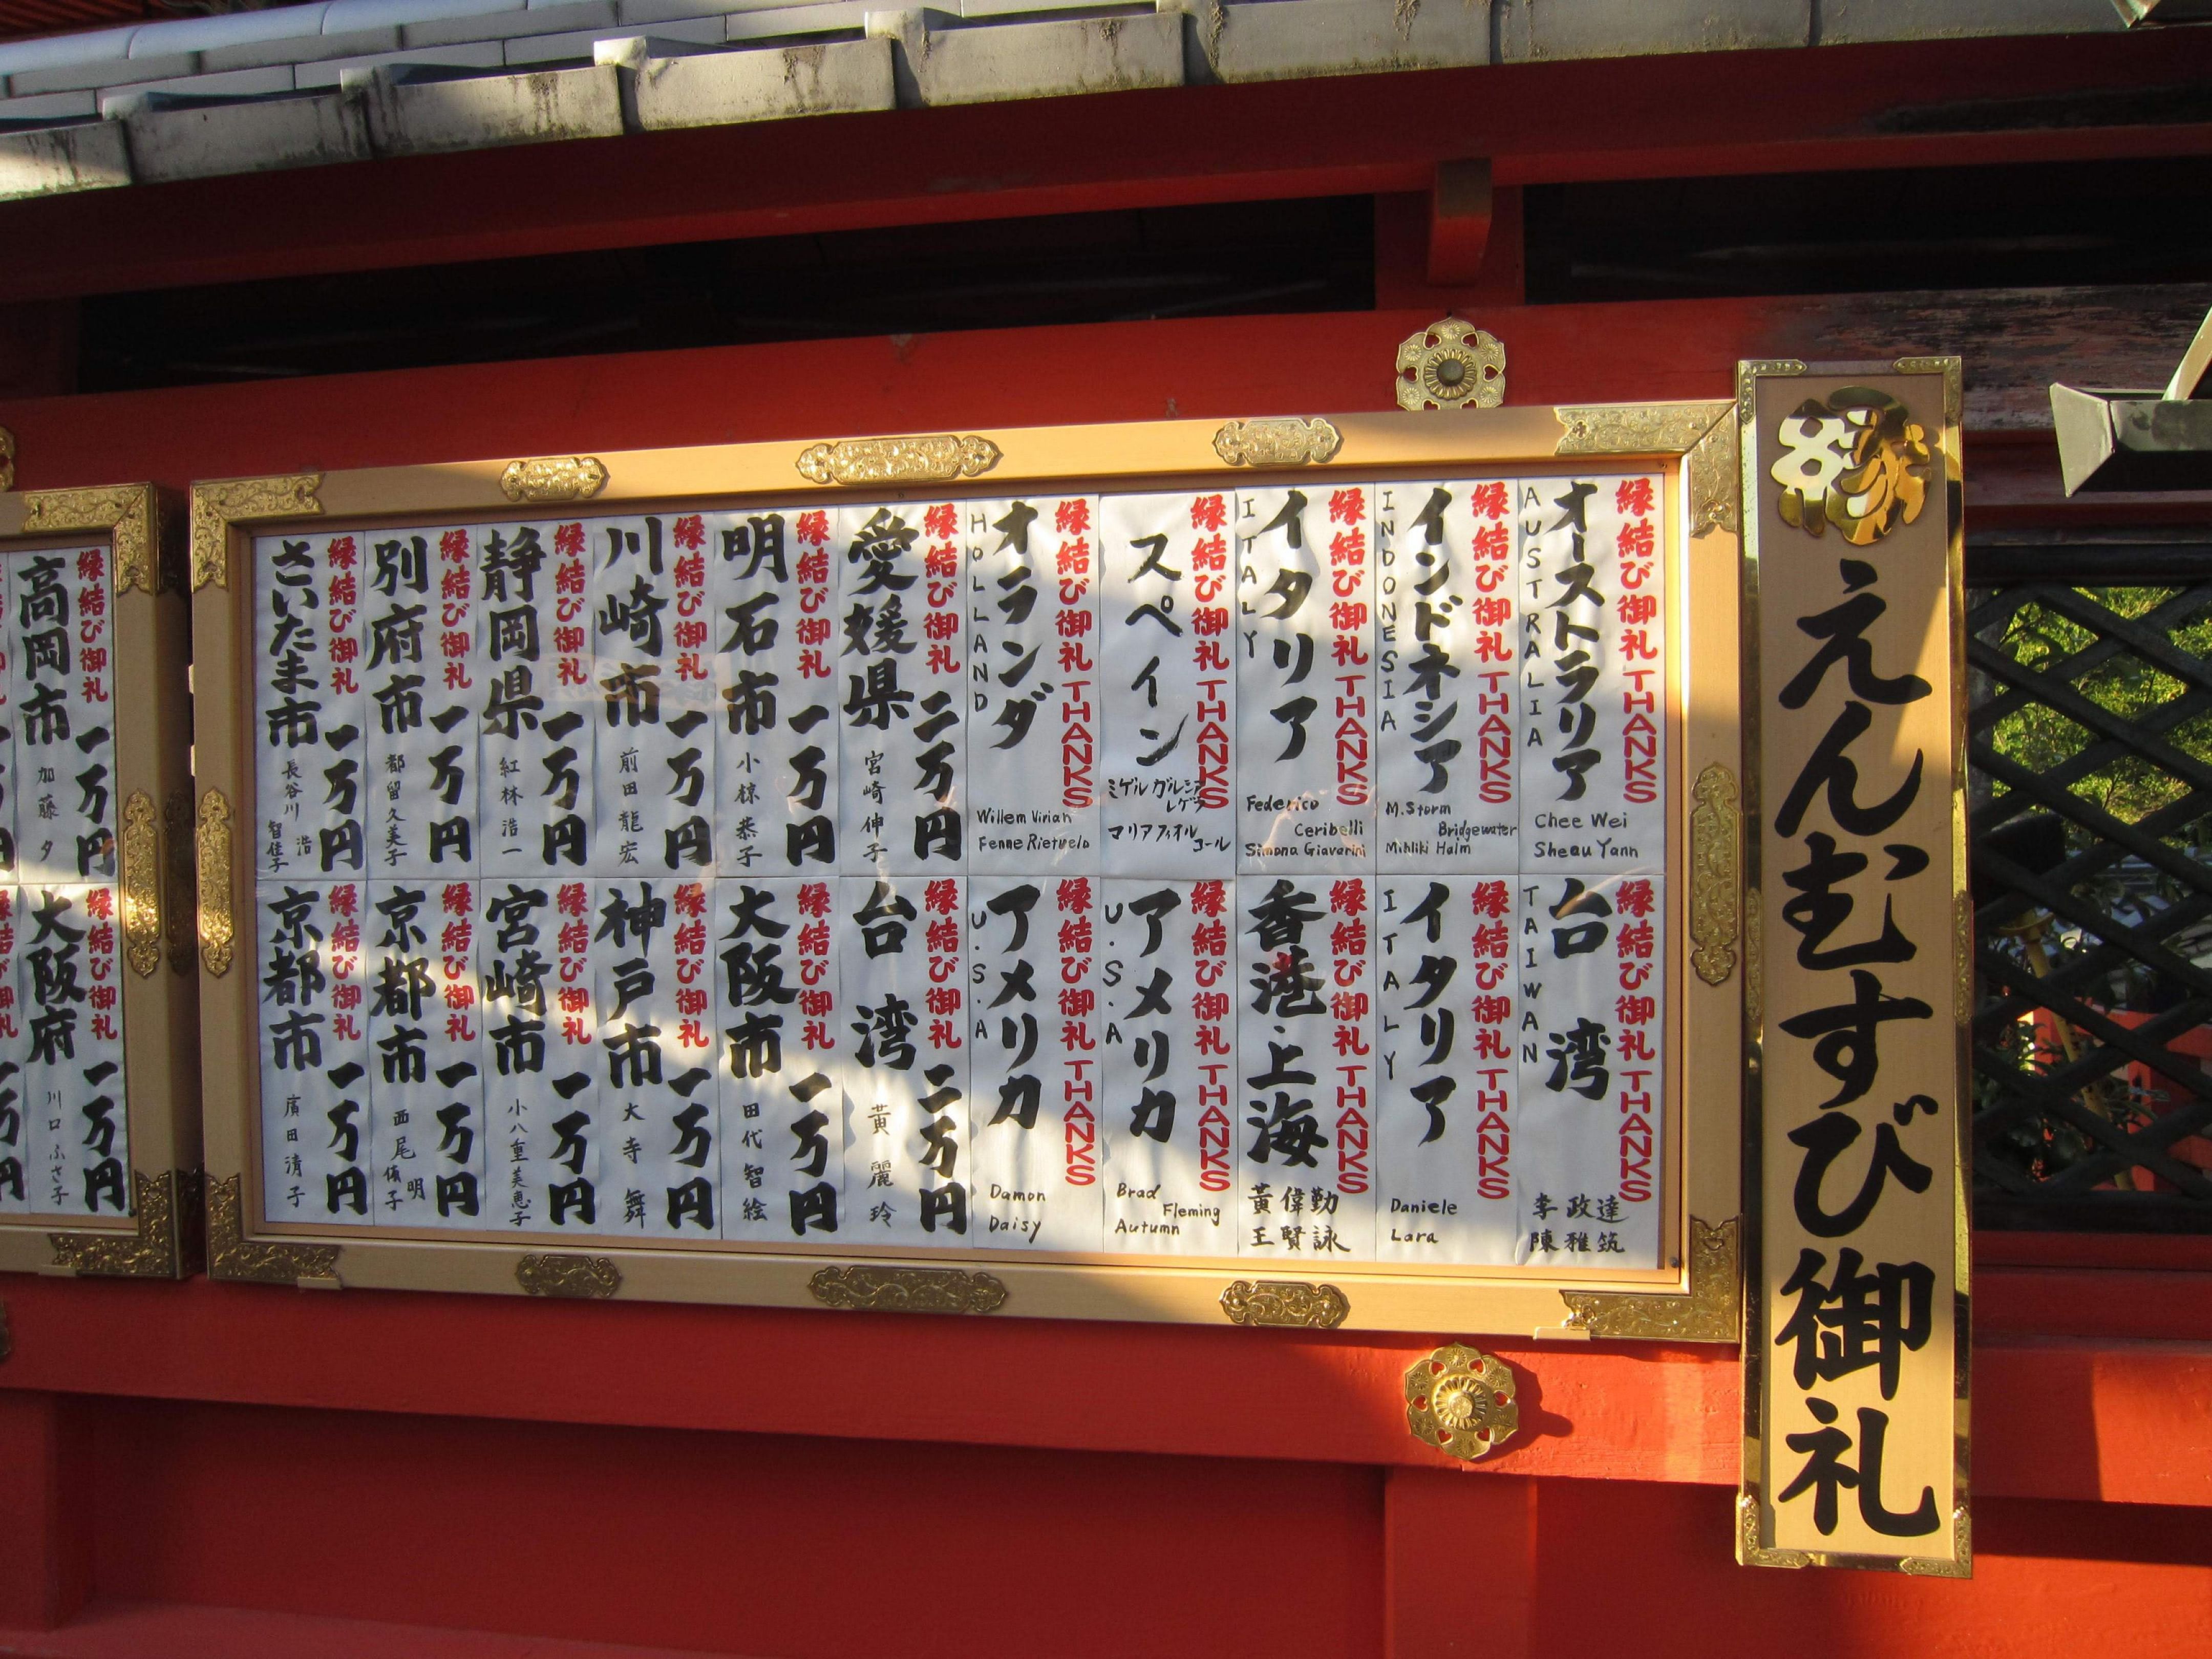 縁
えんむすび御礼
縁結び御礼 THANKS
オーストラリア
AUSTRALIA
Chee Wei
Sheau Yann
縁結び御礼 THANKS
インドネシア
INDONESIA
M.Storm
Bridgewater
Mihliki Halm
縁結び御礼 THANKS
イタリア
ITALY
Federico
Ceribelli
Simona Giavarini
縁結び御礼 THANKS
スペイン
ミゲル ガルシア
マリア フィオル
コール
縁結び御礼 THANKS
オランダ
HOLLAND
Willem Virian
Fenne Rietvelo
縁結び御礼 二万円
愛媛県
宮崎伸子
縁結び御礼 一万円
明石市
小椋恭子
縁結び御礼 一万円
川崎市
前田龍宏
縁結び御礼 一万円
静岡県
紅林浩一
縁結び御礼 一万円
別府市
都留久美子
縁結び御礼 一万円
さいたま市
長谷川 浩
智佳子
縁結び御礼 THANKS
台湾
TAIWAN
李政達
陳雅筑
縁結び御礼 THANKS
イタリア
ITALY
Daniele
Lara
縁結び御礼 THANKS
香港・上海
黃偉勤
王賢詠
縁結び御礼 THANKS
アメリカ
U.S.A
Brad
Fleming
Autumn
縁結び御礼 THANKS
アメリカ
U.S.A
Damon
Daisy
縁結び御礼 二万円
台湾
黃麗玲
縁結び御礼 一万円
大阪市
田代智絵
縁結び御礼 一万円
神戸市
大寺舞
縁結び御礼 一万円
宮崎市
小八重美恵子
縁結び御礼 一万円
京都市
西尾 明
縁結び御礼 一万円
京都市
廣田清子
縁結び御礼 一万円
高岡市
加藤夕
縁結び御礼 一万円
大阪府
川口ふさ子